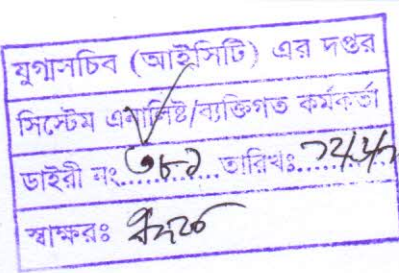 যুগ্মসচিব (আইসিটি) এর দপ্তর
সিস্টেম এনালিষ্ট/ব্যক্তিগত কর্মকর্তা
ডাইরী নং.........তারিখঃ.........
স্বাক্ষরঃ